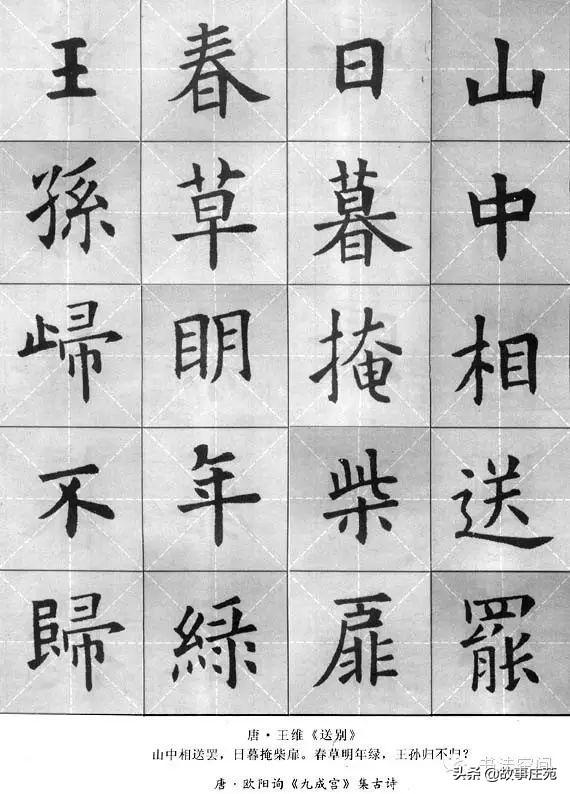 山中相送罷
日暮掩柴扉
春草明年綠
王孫歸不歸
唐·王维《送别》
山中相送罢，日暮掩柴扉。春草明年绿，王孙归不归？
唐·欧阳询《九成宫》集古诗
书法空间
头条@故事庄苑